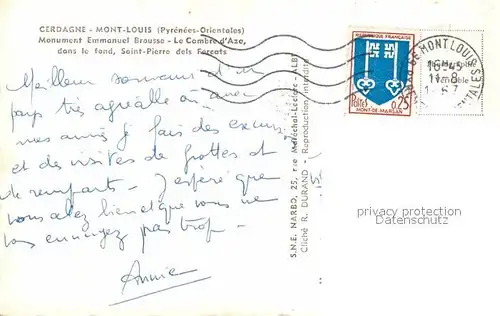 CERDAGNE - MONT-LOUIS (Pyrénées-Orientales)
Monument Emmanuel Brousse - Le Cambre d'Aze,
dans le fond, Saint-Pierre dels Forcats
Meilleur souvenir d'un
pays très agréable où avec
mes amis je fais des excursions
et des visites de grottes et
de remparts. J'espère que
vous allez bien et que vous ne
vous ennuyez pas trop -
Annie
S.N.E. NARBO, 25, rue Maréchal-Leclerc - ALBI
Cliché R. DURAND - Reproduction interdite
RÉPUBLIQUE FRANÇAISE
POSTES 0,25
MONT-DE-MARSAN
MONT LOUIS
16H45
11-8
privacy protection
Datenschutz